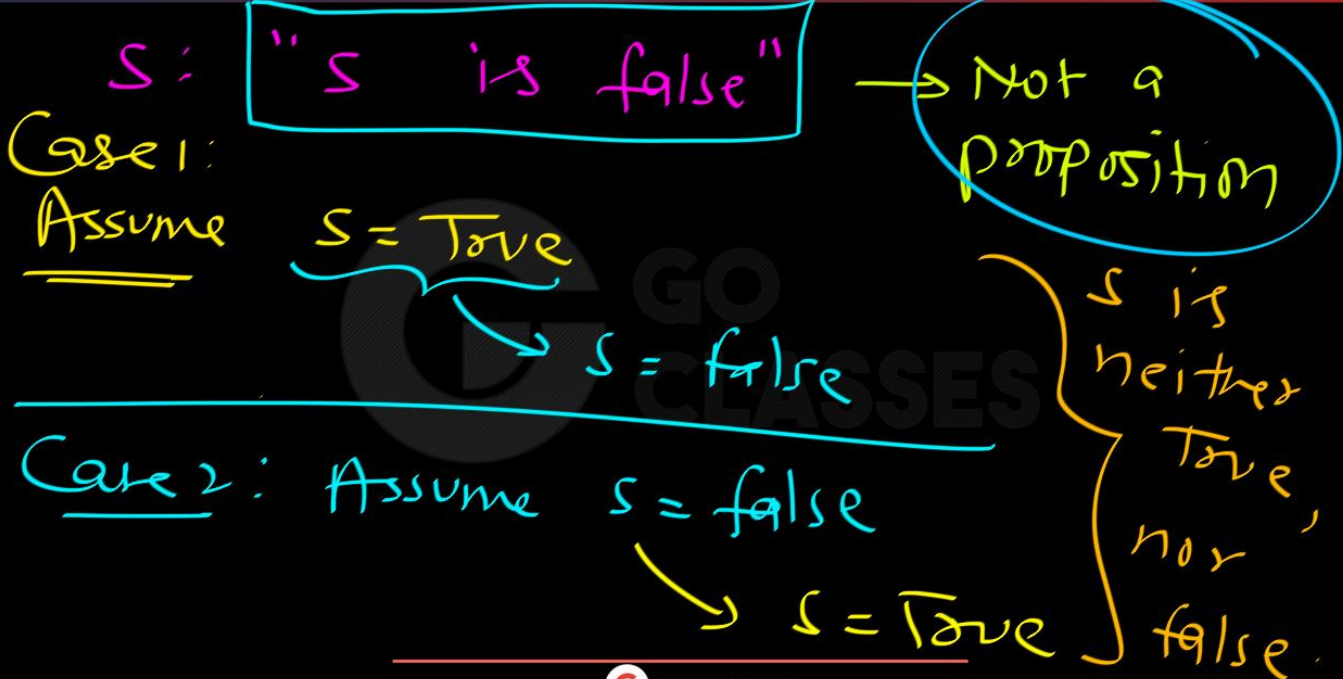 S: "S is false" → Not a
proposition
Case 1:
Assume S = True
S = false
Case 2: Assume S = false
S = True
S is
neither
True,
nor
false.
GO
CLASSES